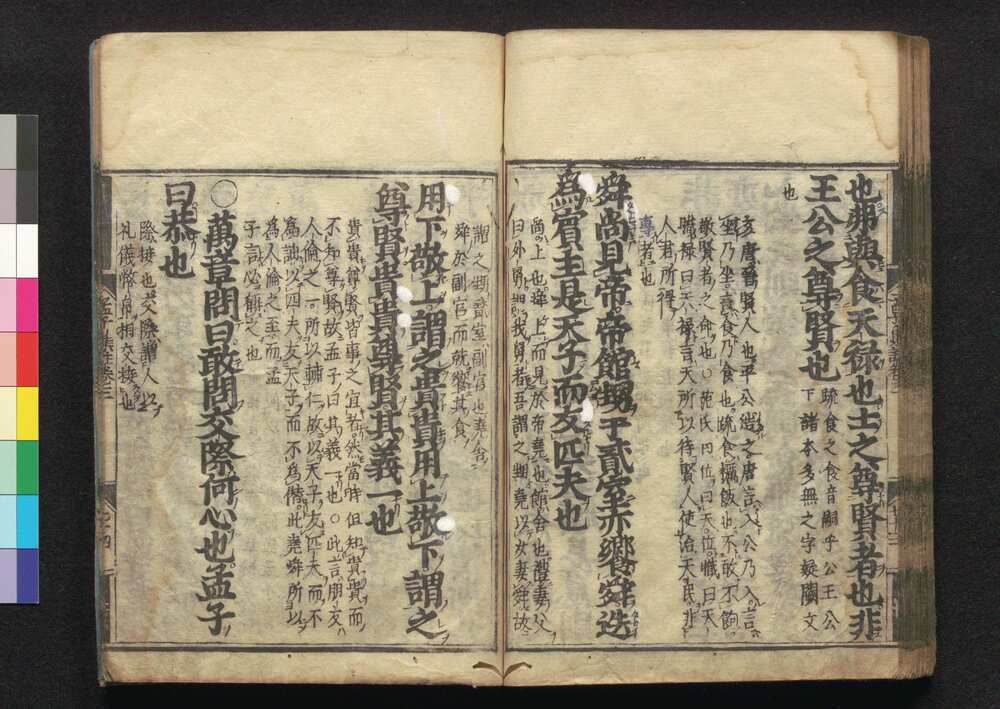 也弗與食天禄也士之尊賢者也非
王公之尊賢也
疏食之食音嗣平公王公
下諸本多無之字疑闕文
也
亥唐晋賢人也平公造之唐言入公乃入言
坐乃坐言食乃食也疏食糲飯也不敢不飽
敬賢者之命也○范氏曰位曰天位職曰天
職禄曰天禄言天所以待賢人使治天民非
人君所得
專者也
舜尚見帝帝館甥于貳室亦饗舜迭
為賓主是天子而友匹夫也
尚上也舜上而見於帝堯也館舍也禮妻父
曰外舅謂我舅者吾謂之甥堯以女妻舜故
謂之甥貳室副宮也堯舍
舜於副宮而就饗其食
用下敬上謂之貴貴用上敬下謂之
尊賢貴貴尊賢其義一也
貴貴尊賢皆事之宜者然當時但知貴貴而
不知尊賢故孟子曰其義一也○此言朋友
人倫之一所以輔仁故以天子友匹夫而不
為詘以匹夫友天子而不為僭此堯舜所以
為人倫之至而孟
子言必稱之也
○萬章問曰敢問交際何心也孟子
曰恭也
際接也交際謂人以
礼儀幣帛相交接也